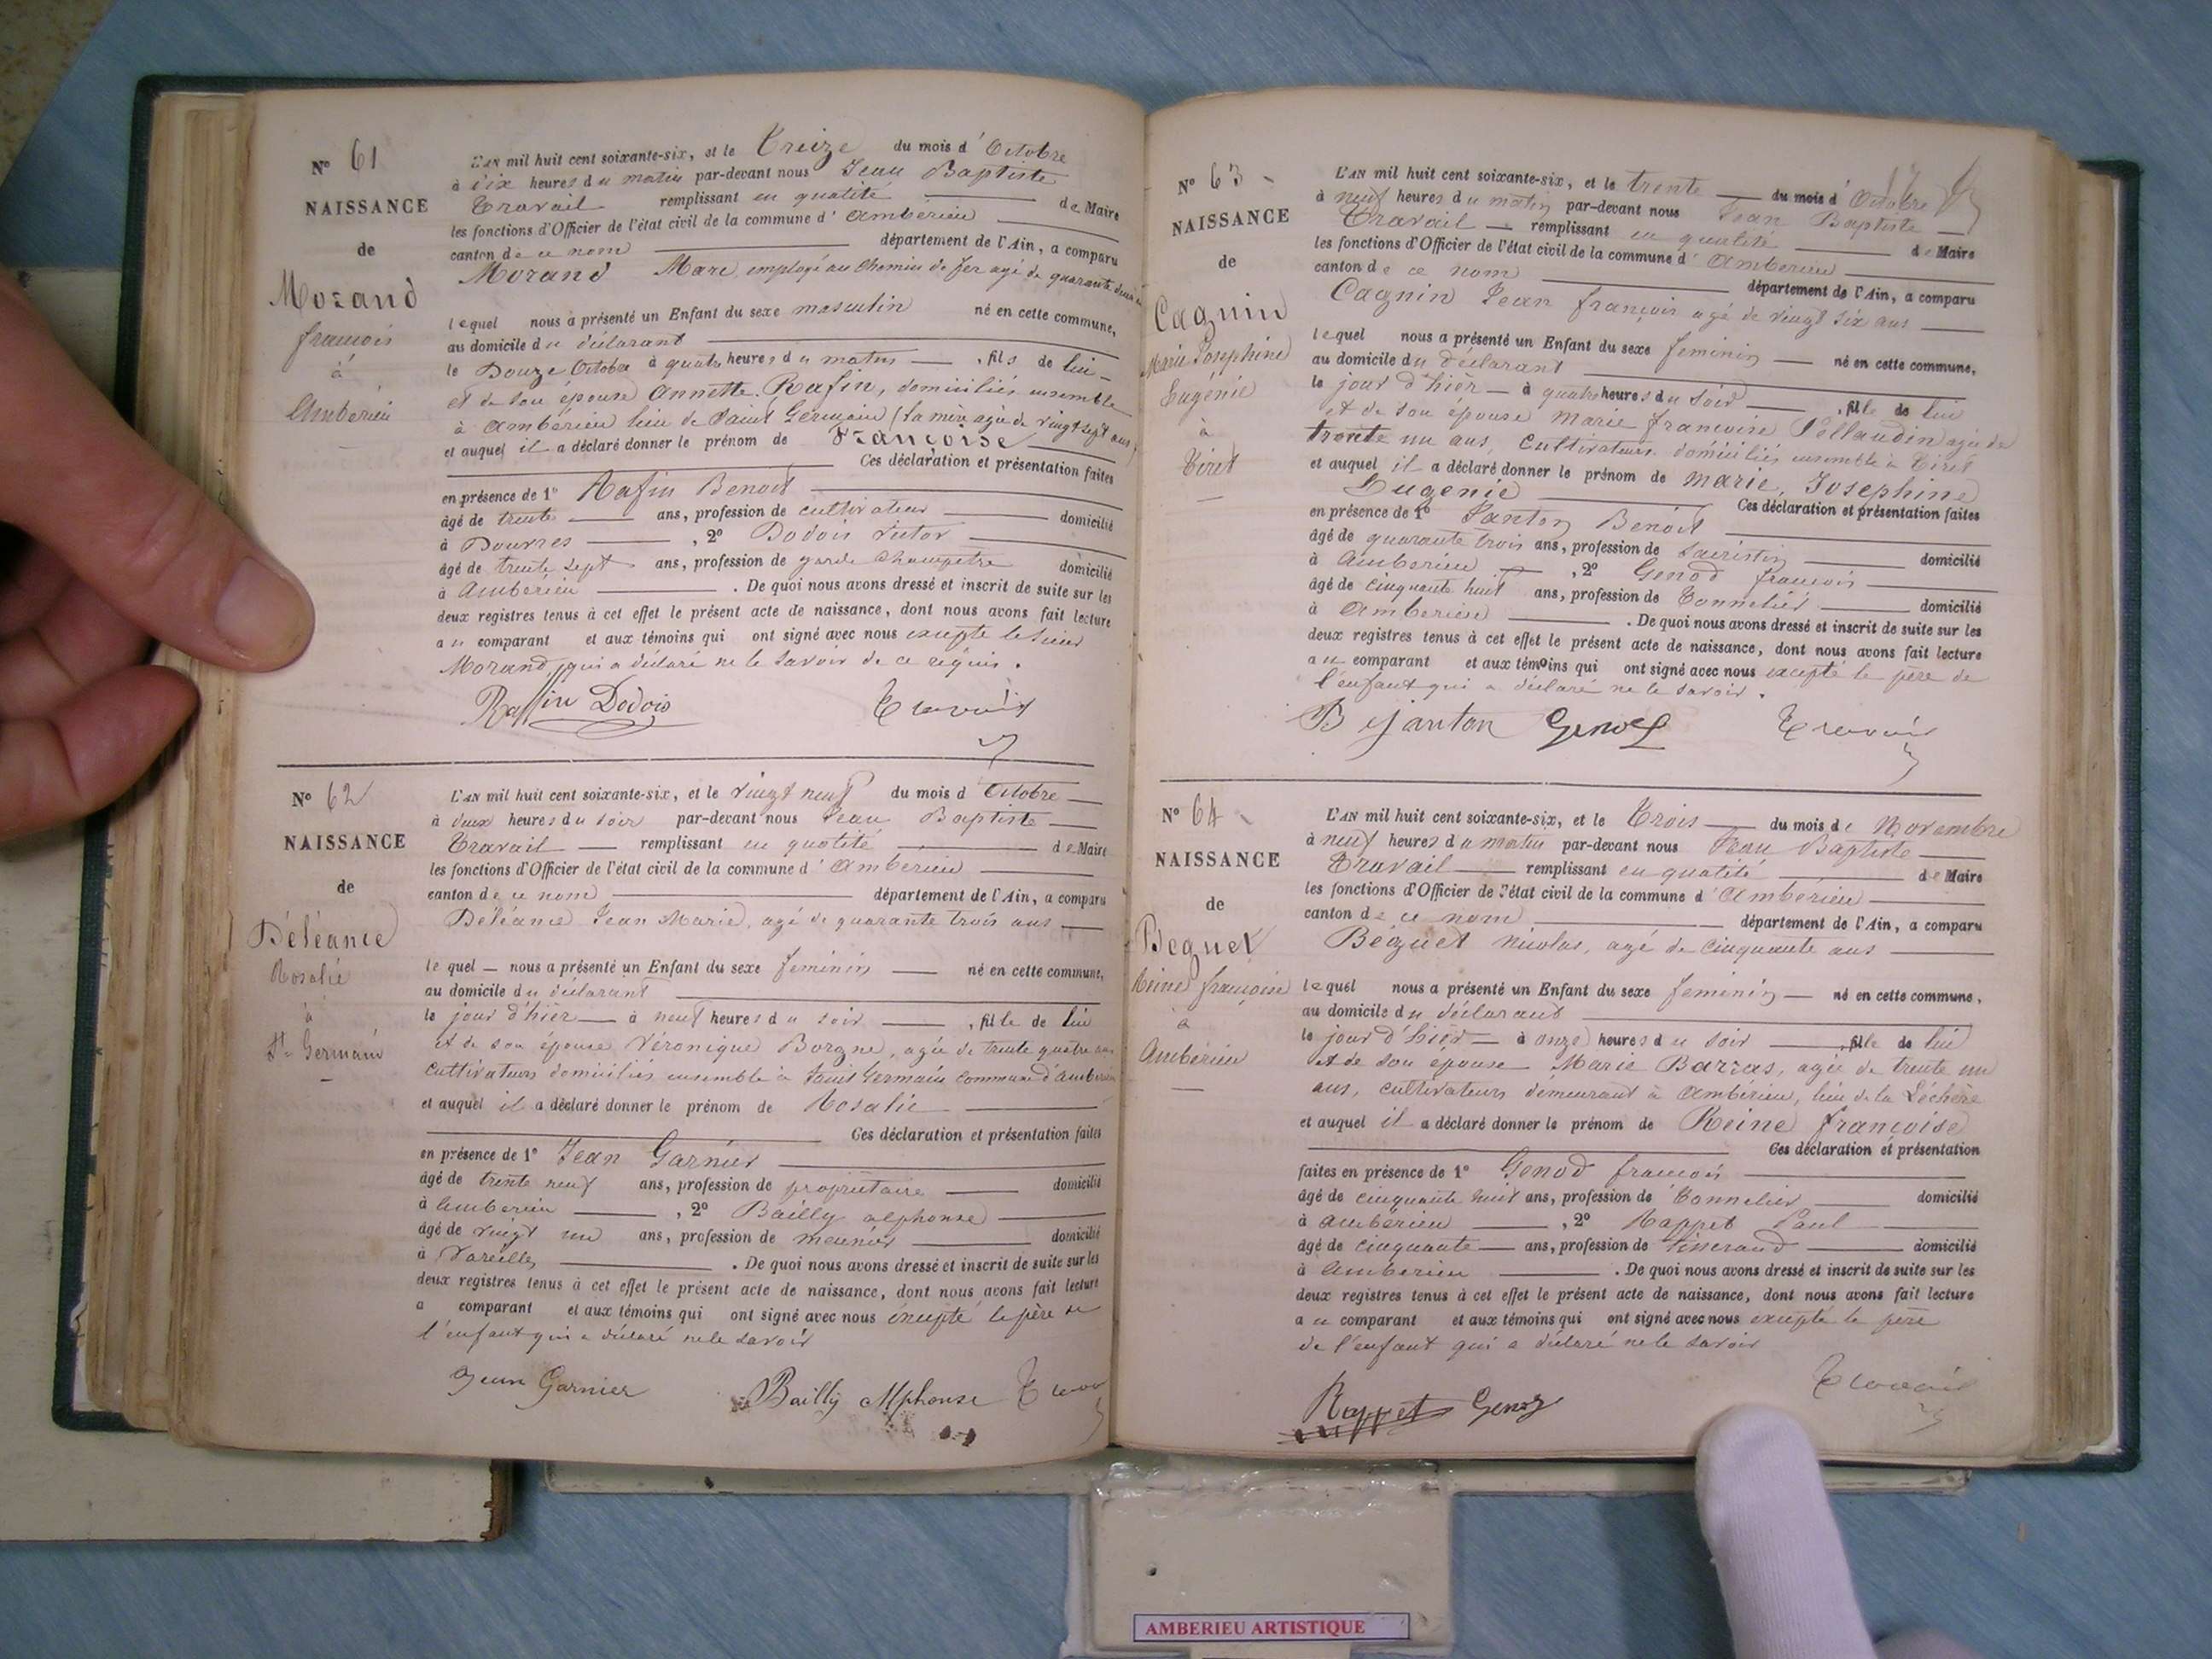 N° 61
NAISSANCE
de
Morand
francois
à
Ambérieu
L'AN mil huit cent soixante-six, et le Treize du mois d'Octobre
à dix heures du matin par-devant nous Jean Baptiste
Travail remplissant en qualité de Maire
les fonctions d'Officier de l'état civil de la commune d'Ambérieu
canton de ce nom département de l'Ain, a comparu
Morand Marc, employé au chemin de fer agé de quarante deux
lequel nous a présenté un Enfant du sexe masculin né en cette commune,
au domicile du déclarant
le Douze Octobre à quatre heures du matin, fils de lui
et de son épouse Annette Rafin, domiciliés ensemble
à Ambérieu lieu de Saint Germain (la mère agée de vingt sept ans)
et auquel il a déclaré donner le prénom de Françoise
Ces déclaration et présentation faites
en présence de 1° Rafin Benoit
âgé de trente ans, profession de cultivateur domicilié
à Douvres, 2° Dodois Victor
âgé de trente sept ans, profession de garde champetre domicilié
à Ambérieu. De quoi nous avons dressé et inscrit de suite sur les
deux registres tenus à cet effet le présent acte de naissance, dont nous avons fait lecture
au comparant et aux témoins qui ont signé avec nous excepté le sieur
Morand, qui a déclaré ne le savoir de ce réquis.
Raffin Dodois Travail
N° 62
NAISSANCE
de
Déléance
Rosalie
à
St Germain
L'AN mil huit cent soixante-six, et le vingt neuf du mois d'Octobre
à deux heures du soir par-devant nous Jean Baptiste
Travail remplissant en qualité de Maire
les fonctions d'Officier de l'état civil de la commune d'Ambérieu
canton de ce nom département de l'Ain, a comparu
Déléance Jean Marie, agé de quarante trois ans
lequel nous a présenté un Enfant du sexe feminin né en cette commune,
au domicile du déclarant
le jour d'hier à neuf heures du soir, fille de lui
et de son épouse Véronique Borgne, agée de trente quatre ans
cultivateurs domiciliés ensemble à Saint Germain commune d'Ambérieu
et auquel il a déclaré donner le prénom de Rosalie
Ces déclaration et présentation faites
en présence de 1° Jean Garnier
âgé de trente neuf ans, profession de propriétaire domicilié
à Ambérieu, 2° Bailly alphonse
âgé de vingt un ans, profession de meunier domicilié
à Vareilles. De quoi nous avons dressé et inscrit de suite sur les
deux registres tenus à cet effet le présent acte de naissance, dont nous avons fait lecture
a comparant et aux témoins qui ont signé avec nous excepté le père de
l'enfant qui a déclaré ne le savoir
Jean Garnier Bailly Alphonse
N° 63
NAISSANCE
de
Cagnin
Marie Josephine
Eugénie
à
Tiret
L'AN mil huit cent soixante-six, et le trente du mois d'Octobre
à neuf heures du matin par-devant nous Jean Baptiste
Travail remplissant en qualité de Maire
les fonctions d'Officier de l'état civil de la commune d'Ambérieu
canton de ce nom département de l'Ain, a comparu
Cagnin Jean françois agé de vingt six ans
lequel nous a présenté un Enfant du sexe feminin né en cette commune,
au domicile du déclarant
le jour d'hier à quatre heures du soir, fille de lui
et de son épouse Marie francoise Pellaudin agée de
trente un ans, cultivateurs domiciliés ensemble à Tiret
et auquel il a déclaré donner le prénom de Marie, Josephine
Eugenie Ces déclaration et présentation faites
en présence de 1° Janton Benoit
âgé de quarante trois ans, profession de Sacristin domicilié
à Ambérieu, 2° Genod francois
âgé de cinquante huit ans, profession de Tonnelier domicilié
à Ambérieu. De quoi nous avons dressé et inscrit de suite sur les
deux registres tenus à cet effet le présent acte de naissance, dont nous avons fait lecture
au comparant et aux témoins qui ont signé avec nous excepté le père de
l'enfant qui a déclaré ne le savoir.
B Janton Genod Travail
N° 64
NAISSANCE
de
Beguet
Reine françoise
à
Ambérieu
L'AN mil huit cent soixante-six, et le Trois du mois de Novembre
à neuf heures du matin par-devant nous Jean Baptiste
Travail remplissant en qualité de Maire
les fonctions d'Officier de l'état civil de la commune d'Ambérieu
canton de ce nom département de l'Ain, a comparu
Béguet Nicolas, agé de cinquante ans
lequel nous a présenté un Enfant du sexe feminin né en cette commune,
au domicile du déclarant
le jour d'hier à onze heures du soir, fille de lui
et de son epouse Marie Barras, agée de trente un
ans, cultivateurs demeurant à Ambérieu, lieu de la Léchère
et auquel il a déclaré donner le prénom de Reine françoise
Ces déclaration et présentation
faites en présence de 1° Genod francois
âgé de cinquante huit ans, profession de Tonnelier domicilié
à Ambérieu, 2° Rappet Paul
âgé de cinquante ans, profession de domicilié
à Ambérieu. De quoi nous avons dressé et inscrit de suite sur les
deux registres tenus à cet effet le présent acte de naissance, dont nous avons fait lecture
au comparant et aux témoins qui ont signé avec nous excepté le père
de l'enfant qui a déclaré ne le savoir
Rappet Genod Travail
AMBERIEU ARTISTIQUE